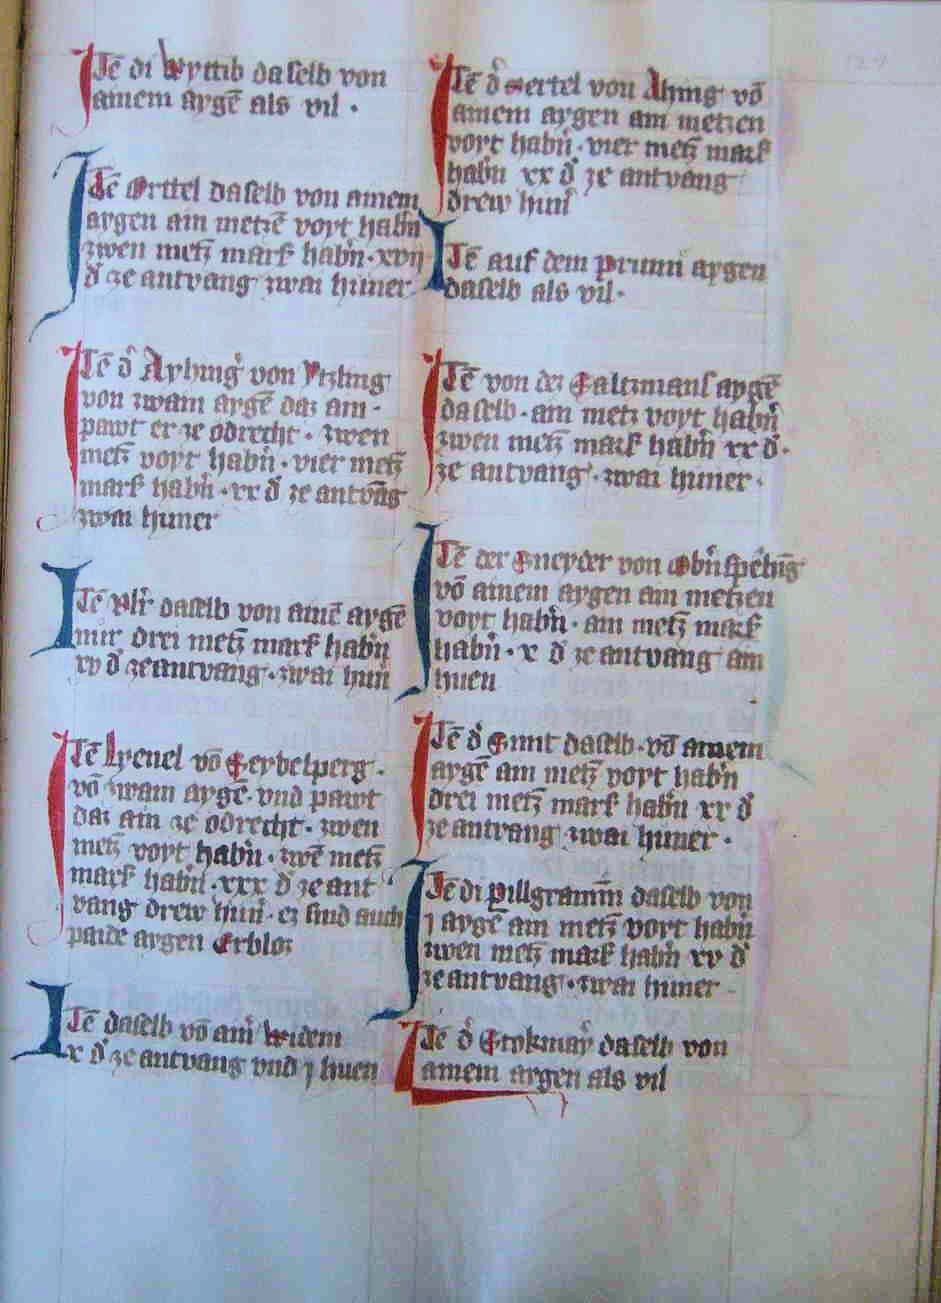 Itē di wyttib daselb von
ainem aygē als vil ·
Itē Orttel daselb von ainem
aygen ain metzē voyt habn̄
zwen metz̄ mark habn̄ · xvij
d̄ ze antvang zwai huner
Itē d̄ Ayhinḡ von
von zwain aygē daz ain ·
pawt er ze odrecht · zwen
metz̄ voyt habn̄ · vier metz̄
mark habn̄ · xx d̄ ze antvāg
zwai huner
Itē Vlr̄ daselb von ainē aygē
nur drei metz̄ mark habn̄
xv d̄ ze antvang · zwai hun̄
Itē Lyenel vō Seybelperg ·
vō zwain aygē · vnd pawt
daz ain ze odrecht · zwen
metz̄ voyt habn̄ · zwē metz̄
mark habn̄ · xxx d̄ ze ant
vang drew hun̄ · ez sind auch
paide aygen Erbloz
Itē daselb vō ain̄ widem
x d̄ ze antvang vnd j huen
Itē d̄ Mertel von Ahing vō
ainem aygen ain metzen
voyt habn̄ · vier metz̄ mark
habn̄ xx d̄ ze antvang
drew hun̄
Itē auf dem prunn aygen
daselb als vil ·
Itē von dez Saltzmans aygē
daselb · ain metz voyt habn̄
zwen metz̄ mark habn̄ xx d̄ ·
ze antvang · zwai huner ·
Itē der Sneyder von
vō ainem aygen ain metzen
voyt habn̄ · ain metz̄ mark
habn̄ · x d̄ ze antvang ain
huen
Itē d̄ Sunt daselb · vō ainem
aygē ain metz̄ voyt habn̄
drei metz̄ mark habn̄ xx d̄
ze antvang zwai huner ·
Itē di pillgramīn daselb von
j aygē ain metz̄ voyt habn̄
zwen metz̄ mark habn̄ xv d̄
ze antvang · zwai huner
Itē d̄ Stokmaȳr daselb von
ainem aygen als vil